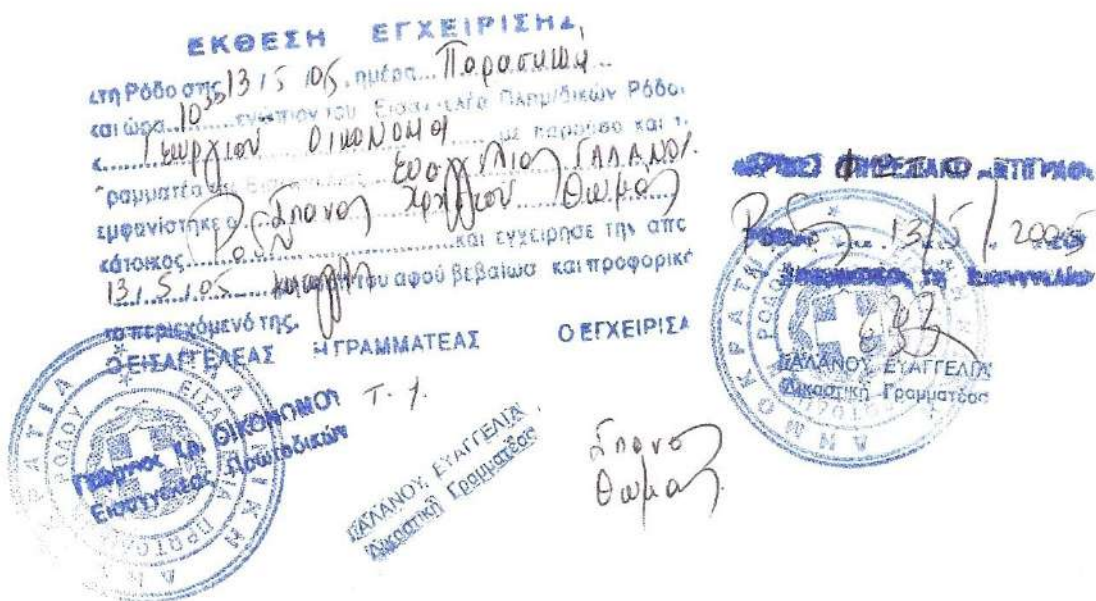 ΕΚΘΕΣΗ ΕΓΧΕΙΡΙΣΗΣ
στη Ρόδο στις 13 / 5 / 05, ημέρα... Παρασκευή
και ώρα 10³⁰ ενώπιον του Εισαγγελέα Πλημ/δικών Ρόδου
κ. Γεώργιου ΟΙΚΟΝΟΜΟΥ με παρούσα και τ
Γραμματέα της Εισαγγελίας Ευαγγελία ΓΑΛΑΝΟΥ
εμφανίστηκε ο Σπανός Θωμάς
κάτοικος Ρόδου και εγχείρησε την από
13/5/05 του αφού βεβαίωσε και προφορικά
το περιεχόμενό της.
Ο ΕΙΣΑΓΓΕΛΕΑΣ Η ΓΡΑΜΜΑΤΕΑΣ Ο ΕΓΧΕΙΡΙΣΑ
Τ. Υ.
Γεώργιος Χρ. ΟΙΚΟΝΟΜΟΥ
Εισαγγελέας Πρωτοδικών
ΓΑΛΑΝΟΥ ΕΥΑΓΓΕΛΙΑ
Δικαστική Γραμματέας
Σπανός
Θωμάς
ΑΚΡΙΒΕΣ ΥΠΗΡΕΣΙΑΚΟ ΑΝΤΙΓΡΑΦΟ
Ρόδος 13/5/2005
Γραμματέας της Εισαγγελίας
ΓΑΛΑΝΟΥ ΕΥΑΓΓΕΛΙΑ
Δικαστική Γραμματέας